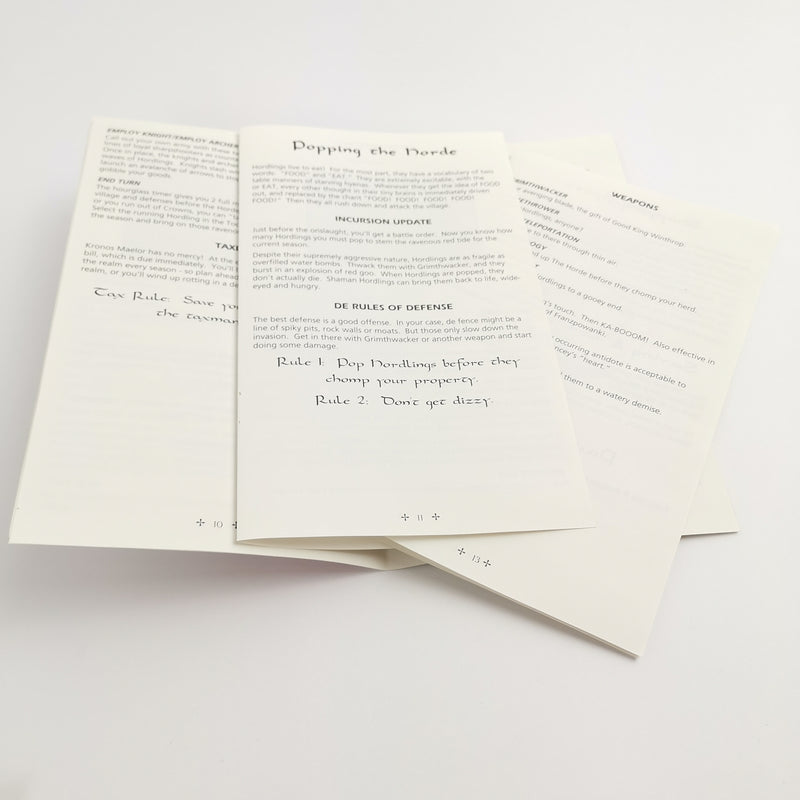 EMPLOY KNIGHT/EMPLOY ARCHER
Call out your own army with these
lines of loyal sharpshooters as
Once in place, the knights and
waves of Hordlings. Knights slash
launch an avalanche of arrows to
gobble your goods.
END TURN
The hourglass timer gives you 2 full
village and defenses before the
or you run out of Crowns, you can
Select the running Hordling in the
the season and bring on those
Kronos Maelor has no mercy! At the
bill, which is due immediately. You'll
the realm every season - so plan ahead
realm, or you'll wind up rotting in a
Tax Rule: Save
the
10
Popping the Horde
Hordlings live to eat! For the most part, they have a vocabulary of two
words: "FOOD" and "EAT." They are extremely excitable, with the
table manners of starving hyenas. Whenever they get the idea of FOOD
or EAT, every other thought in their tiny brains is immediately driven
out, and replaced by the chant "FOOD! FOOD! FOOD! FOOD!
FOOD!" Then they all rush down and attack the village.
INCURSION UPDATE
Just before the onslaught, you'll get a battle order. Now you know how
many Hordlings you must pop to stem the ravenous red tide for the
current season.
Despite their supremely aggressive nature, Hordlings are as fragile as
overfilled water bombs. Thwack them with Grimthwacker, and they
burst in an explosion of red goo. When Hordlings are popped, they
don't actually die. Shaman Hordlings can bring them back to life, wide-
eyed and hungry.
DE RULES OF DEFENSE
The best defense is a good offense. In your case, de fence might be a
line of spiky pits, rock walls or moats. But those only slow down the
invasion. Get in there with Grimthwacker or another weapon and start
doing some damage.
Rule 1: Pop Hordlings before they
chomp your property.
Rule 2: Don't get dizzy.
11
WEAPONS
GRIMTHWACKER
avenging blade, the gift of Good King Winthrop.
Hordlings, anyone?
TELEPORTATION
to there through thin air.
up The Horde before they chomp your herd.
Hordlings to a gooey end.
touch. Then KA-BOOOM! Also effective in
of Franzpowanki.
occurring antidote is acceptable to
"heart."
them to a watery demise.
13